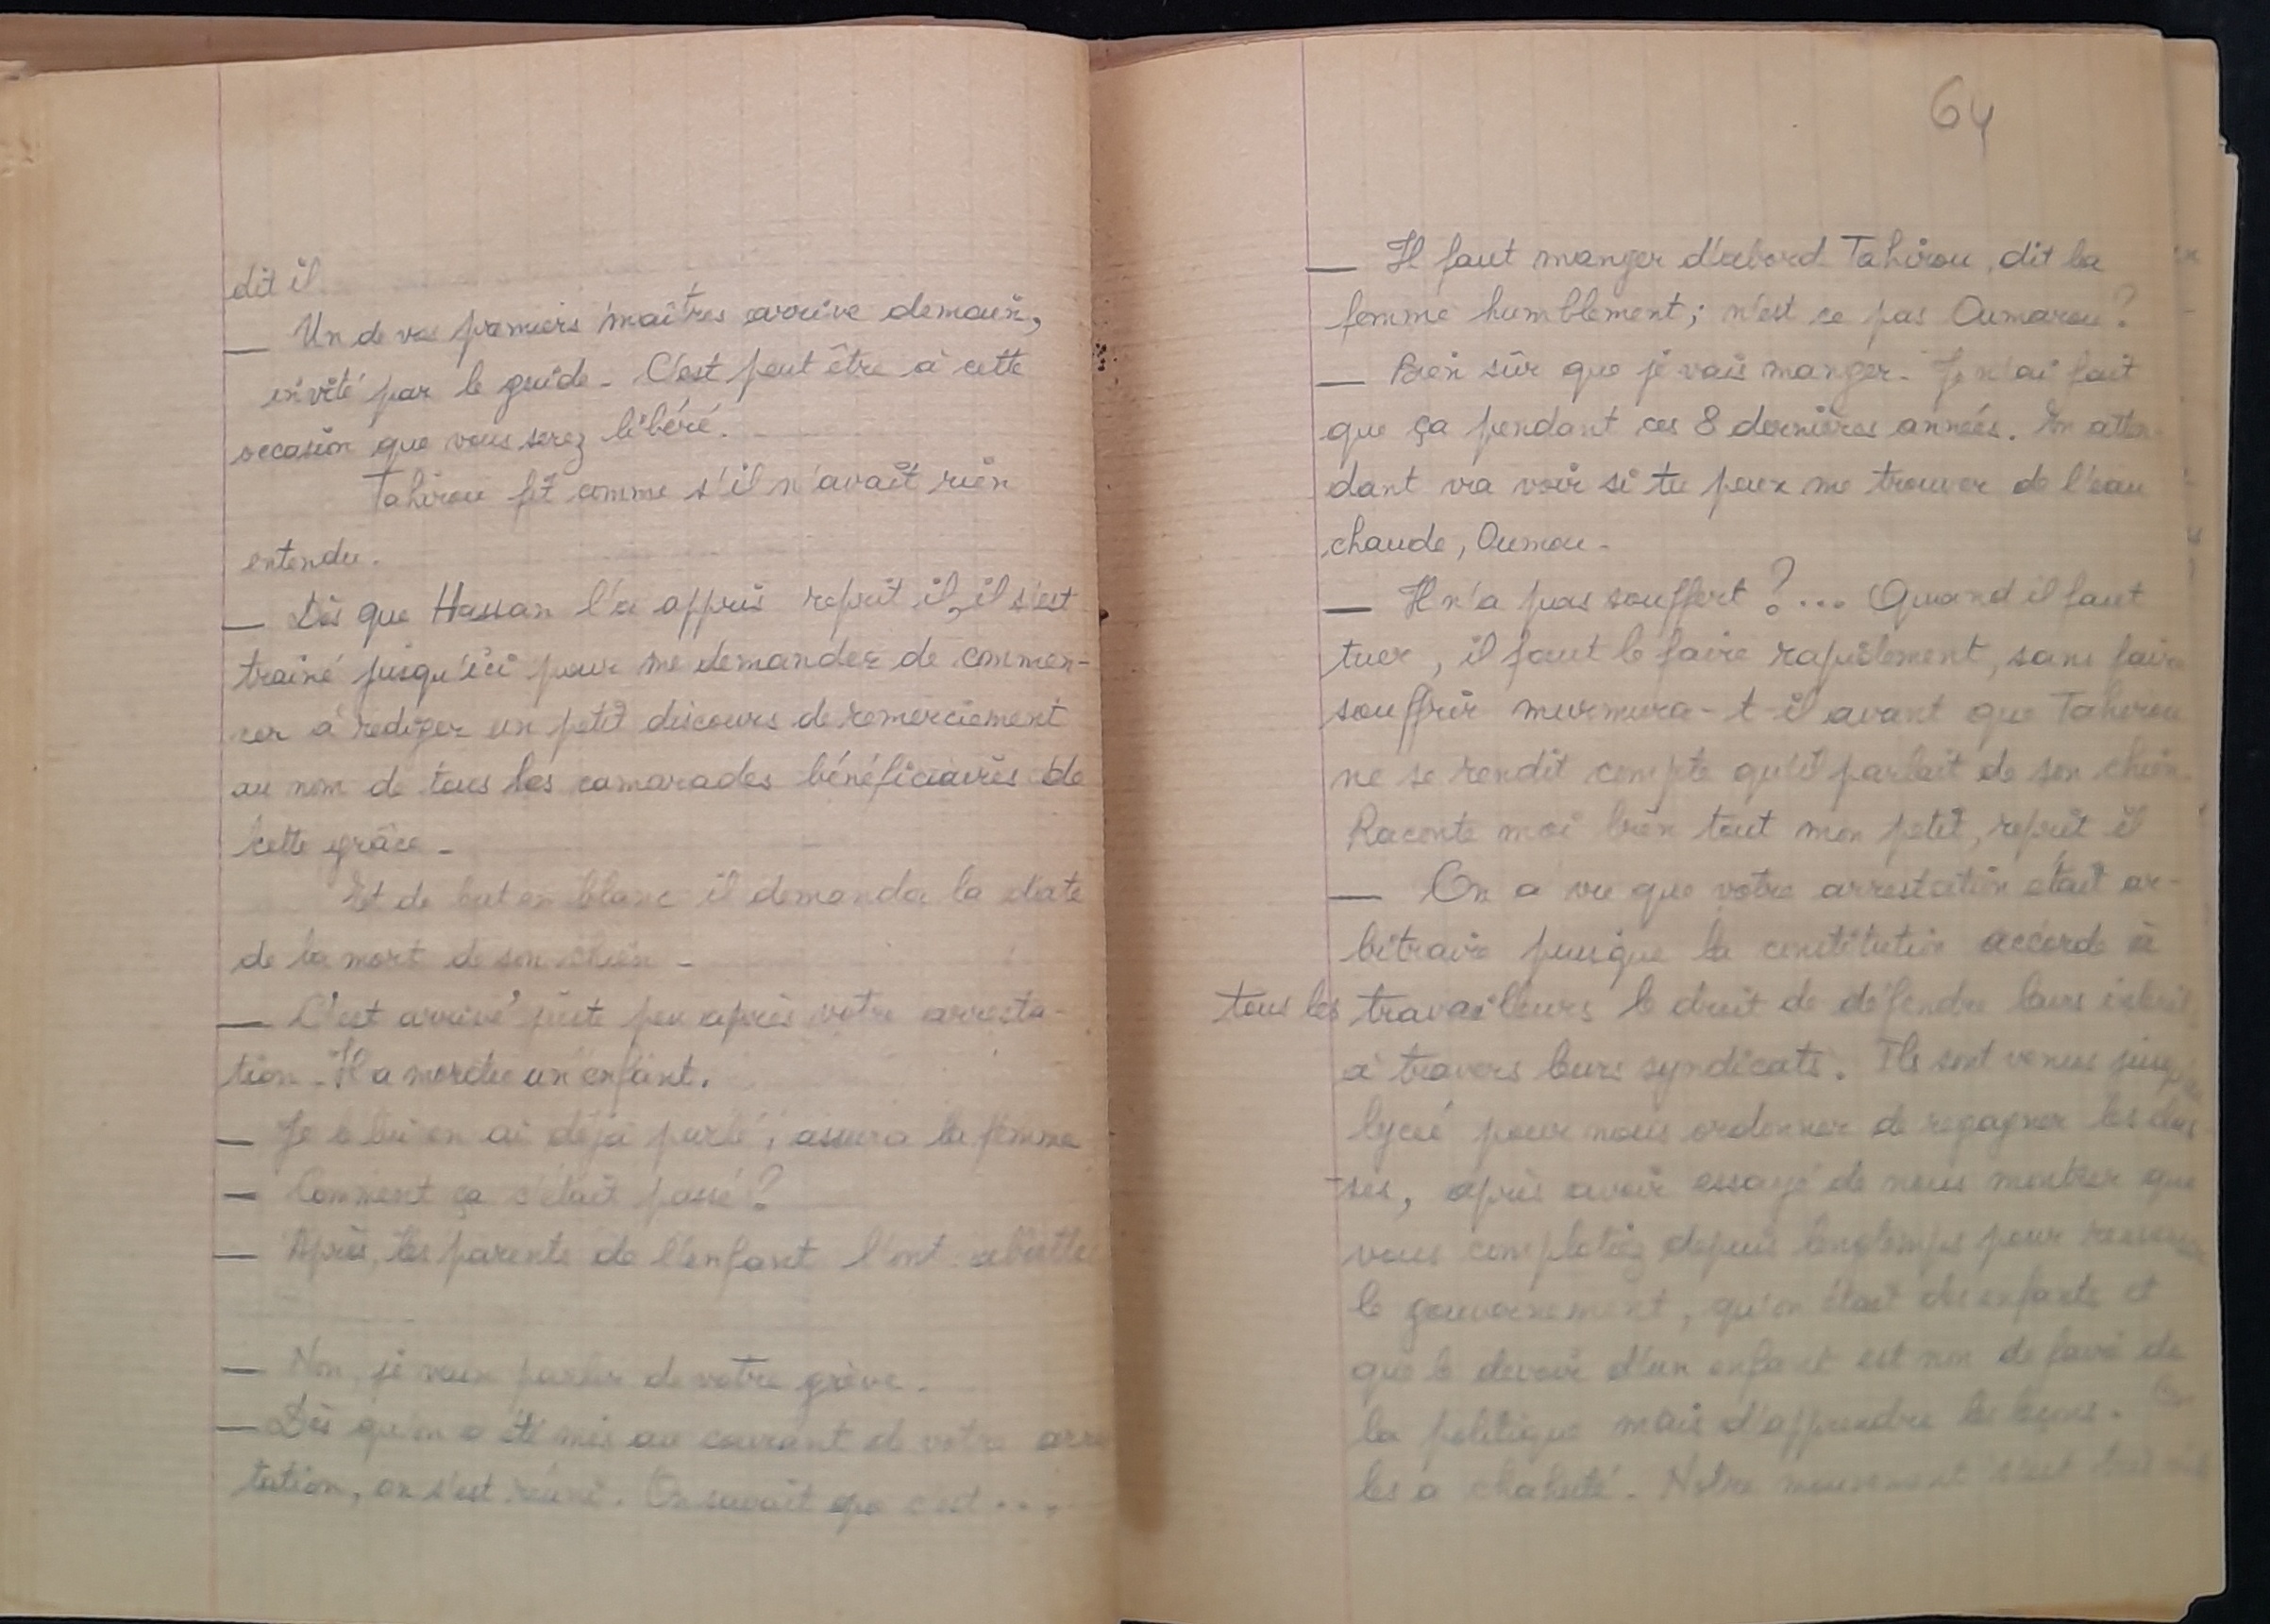 dit il
— Un de vos premiers maîtres arrive demain,
invité par le guide - C'est peut être à cette
occasion que vous serez libéré.
Tahirou fit comme s'il n'avait rien
entendu.
— Dès que Hassan l'a appris reprit il, il s'est
trainé jusqu'ici pour me demander de commen-
cer à rediger un petit discours de remerciement
au nom de tous les camarades bénéficiaires de
cette grâce -
Et de but en blanc il demanda la date
de la mort de son chien -
— C'est arrivé juste peu après votre arresta-
tion - Il a mordu un enfant.
— Je lui en ai déjà parlé, assura la femme
— Comment ça s'était passé ?
— Après, les parents de l'enfant l'ont
— Non, je veux parler de votre grève.
— Dès qu'on a été mis au courant de votre arres
tation, on s'est réuni. On savait que c'est ...
64
— Il faut manger d'abord Tahirou, dit la
femme humblement ; n'est ce pas Oumarou ?
— Bien sûr que je vais manger - Je n'ai fait
que ça pendant ces 8 dernières années. En atten-
dant va voir si tu peux me trouver de l'eau
chaude, Oumou -
— Il n'a pas souffert ? ... Quand il faut
tuer, il faut le faire rapidement, sans faire
souffrir murmura-t-il avant que Tahirou
ne se rendit compte qu'il parlait de son chien.
Raconte moi bien tout mon petit, reprit il
— On a vu que votre arrestation était ar-
bitraire puisque la constitution accorde à
tous les travailleurs le droit de défendre leurs
à travers leurs syndicats. Ils sont venus
lycée pour nous ordonner de regagner les clas
-ses, après avoir essayé de nous montrer que
vous complotiez depuis longtemps pour
le gouvernement, qu'on était des enfants et
que le devoir d'un enfant est non de faire de
la politique mais d'apprendre les leçons. On
les a chahuté. Notre mouvement s'est